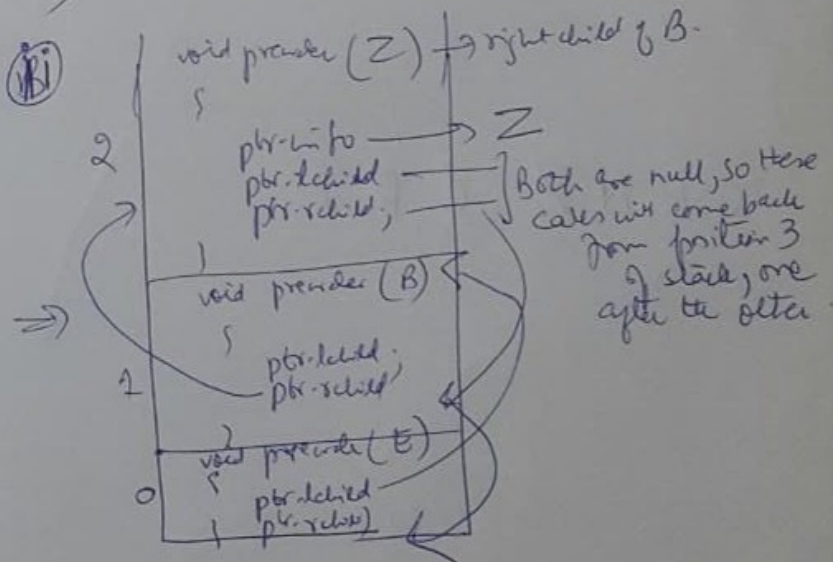 void preorder (Z) → right child of B.
{
2
ptr-info → Z
ptr-lchild
ptr-rchild;
Both are null, so these
calls will come back
from position 3
of stack, one
after the other
}
void preorder (B)
{
⇒
ptr-lchild;
1
ptr-rchild
}
void preorder (E)
{
0
ptr-lchild
ptr-rchild
}